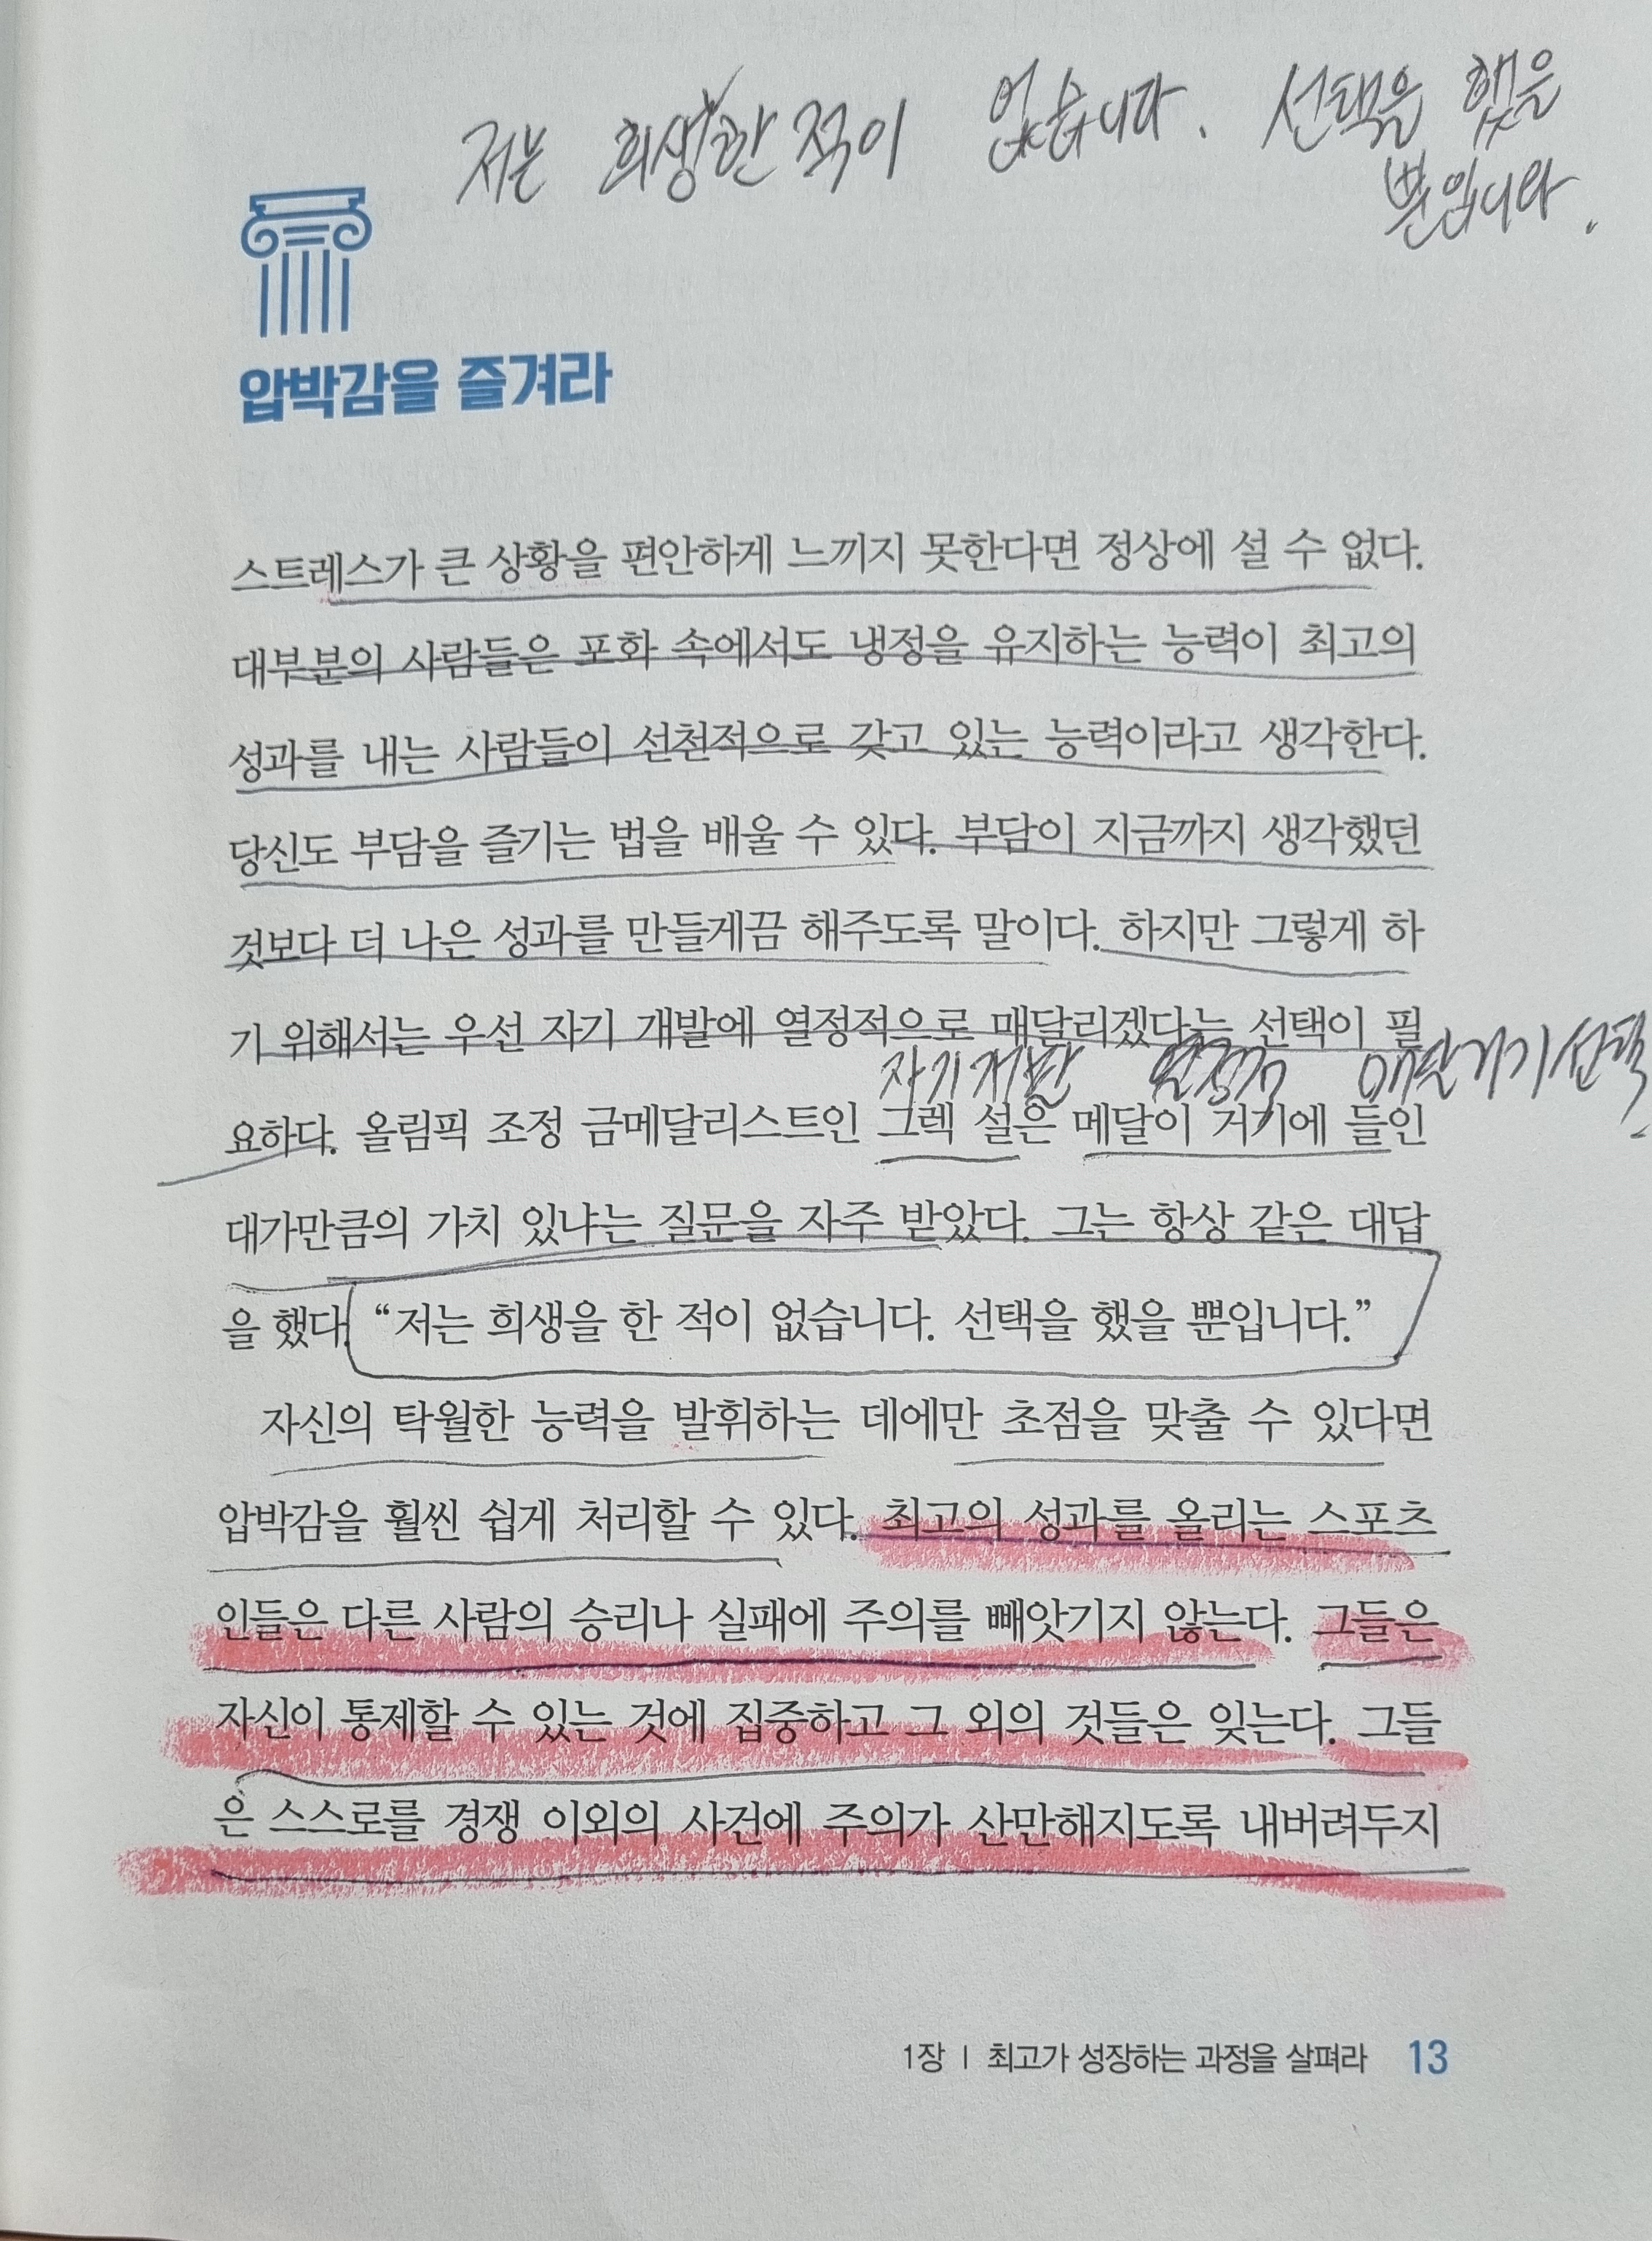 저는 희생한 적이 없습니다. 선택을 했을
뿐입니다.
압박감을 즐겨라
스트레스가 큰 상황을 편안하게 느끼지 못한다면 정상에 설 수 없다.
대부분의 사람들은 포화 속에서도 냉정을 유지하는 능력이 최고의
성과를 내는 사람들이 선천적으로 갖고 있는 능력이라고 생각한다.
당신도 부담을 즐기는 법을 배울 수 있다. 부담이 지금까지 생각했던
것보다 더 나은 성과를 만들게끔 해주도록 말이다. 하지만 그렇게 하
기 위해서는 우선 자기 개발에 열정적으로 매달리겠다는 선택이 필
자기개발 열정적 매달리기 선택
요하다. 올림픽 조정 금메달리스트인 그렉 설은 메달이 거기에 들인
대가만큼의 가치 있냐는 질문을 자주 받았다. 그는 항상 같은 대답
을 했다. “저는 희생을 한 적이 없습니다. 선택을 했을 뿐입니다.”
자신의 탁월한 능력을 발휘하는 데에만 초점을 맞출 수 있다면
압박감을 훨씬 쉽게 처리할 수 있다. 최고의 성과를 올리는 스포츠
인들은 다른 사람의 승리나 실패에 주의를 빼앗기지 않는다. 그들은
자신이 통제할 수 있는 것에 집중하고 그 외의 것들은 잊는다. 그들
은 스스로를 경쟁 이외의 사건에 주의가 산만해지도록 내버려두지
1장 | 최고가 성장하는 과정을 살펴라 13